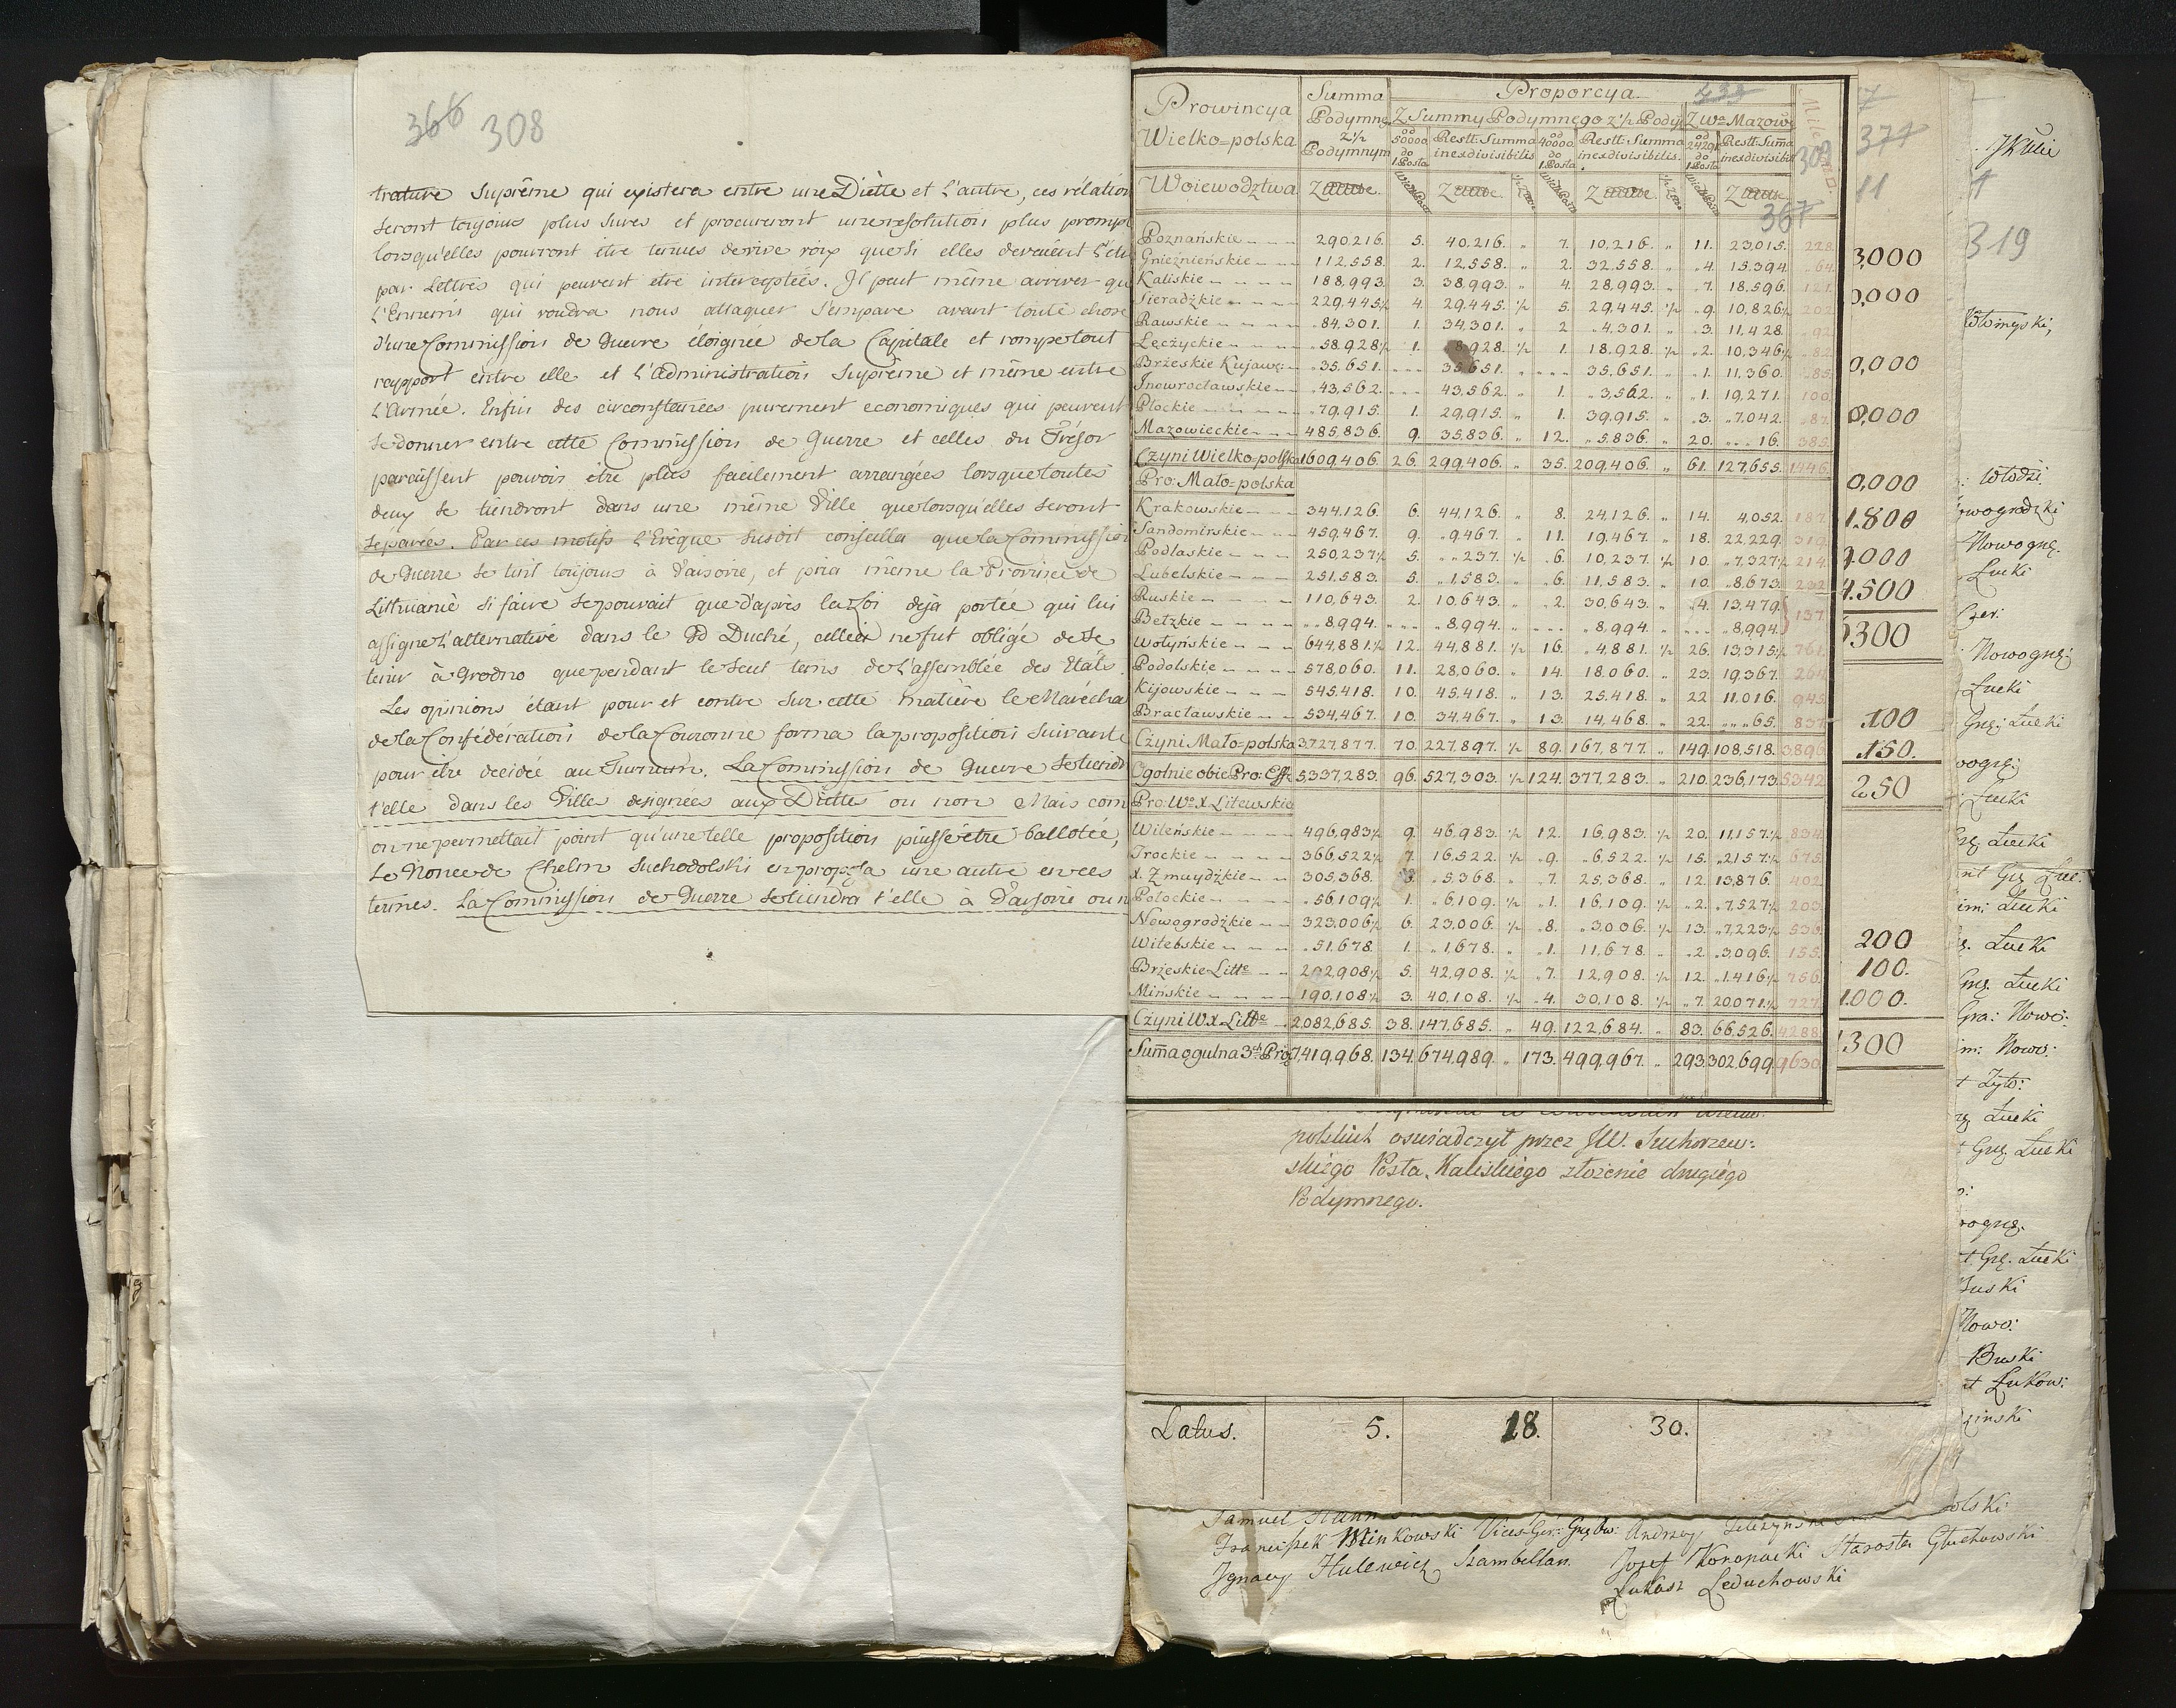 366 308
trature Suprême qui existera entre une Diète et l'autre, ces rélation
seront toujours plus sures et procureront une resolution plus prompt
lorsqu'elles pourront être tenues de vive voix que si elles devenent l'être
par Lettres qui peuvent etre interceptées. Il peut même arriver qu
l'Ennemi qui voudra nous attaquer s'empare avant toute chose
d'une Commission de Guerre éloignée de la Capitale et rompe tout
rapport entre elle et l'administration Suprême et même entre
l'Armée. Enfin des circonstances purement economiques qui peuvent
se donner entre cette Commission de Guerre et celles du Trésor
paraissent pouvoir être plus facilement arrangées lorsque toutes
deux se tiendront dans une même Ville que lorsqu'elles seront
separées. Par ces motifs l'Evêque susdit conseilla que la Commission
de Guerre se tint toujours à Varsovie, et pria même la Province de
Lithuanie si faire se pouvait que d'après la Loi déja portée qui lui
assigne l'alternative dans le Gd Duché, celle ci ne fut obligé de se
tenir à Grodno que pendant le seul tems de l'assemblée des Etats.
Les opinions étant pour et contre sur cette matière le Marécha
de la Confédération de la Couronne forma la proposition suivante
pour être decidée au Turnum. La Commission de Guerre se tiendr
t'elle dans les Villes designées aux Diètes ou non Mais com
on ne permettait point qu'une telle proposition puisse être ballotée,
le Nonce de Chelm Suchodolski en proposa une autre en ces
termes. La Commission de Guerre se tiendra t'elle à Varsovie ou n
Prowincya Wielko=polska Summa Podymneg z ½ Podymnym Proporcya
Z Summy Podymnego z ½ Pody Z Wa Mazow
od 50000 do 1 Posła Restt: Summa inexdivisibilis od 40000 do 1 Posła Restt: Summa inexdivisibilis od 24291 do 1 Posła Restt: Suma inexdivisibil
309
Woiewodztwa
367
Poznańskie 290,216. 5. 40,216. " 7. 10,216. " 11. 23,015. 228.
Gnieźnieńskie 112,558. 2. 12,558. " 2. 32,558. " 4. 15,394. 64.
Kaliskie 188,993. 3. 38,993. " 4. 28,993. " 7. 18,596. 121.
Sieradzkie 229,445½ 4. 29,445. ½ 5. 29,445. ½ 9. 10,826½ 202.
Rawskie 84,301. 1. 34,301. " 2. 4,301. " 3. 11,428. 92.
Łęczyckie 58,928½ 1. 8,928. ½ 1. 18,928. ½ 2. 10,346½ 82.
Brzeskie Kujaw: 35,651. 35,651. 35,651. " 1. 11,360. 85.
Jnowrocławskie 43,562. 43,562. 1. 3,562. " 1. 19,271. 100.
Płockie 79,915. 1. 29,915. " 1. 39,915. " 3. 7,042. 87.
Mazowieckie 485,836. 9. 35,836. " 12. 5,836. " 20. 16. 385.
Czyni Wielko-polska 1609,406. 26. 299,406. " 35. 209,406. " 61. 127,655. 1446.
Pro: Mało=polska
Krakowskie 344,126. 6. 44,126. " 8. 24,126. " 14. 4,052. 187.
Sandomirskie 459,467. 9. 9,467. " 11. 19,467. " 18. 22,229. 319.
Podlaskie 250,237½ 5. 237. ½ 6. 10,237. ½ 10. 7,327½ 214.
Lubelskie 251,583. 5. 1,583. " 6. 11,583. " 10. 8,673. 232.
Ruskie 110,643. 2. 10,643. " 2. 30,643. " 4. 13,479. 137.
Bełzkie 8,994. 8,994. " 8,994. " 8,994.
Wołyńskie 644,881½ 12. 44,881. ½ 16. 4,881. ½ 26. 13,315½ 761.
Podolskie 578,060. 11. 28,060. " 14. 18,060. " 23. 19,367. 264.
Kijowskie 545,418. 10. 45,418. " 13. 25,418. " 22. 11,016. 945.
Bracławskie 534,467. 10. 34,467. " 13. 14,468. " 22. 65. 837.
Czyni Mało=polska 3,727,877. 70. 227,897. ½ 89. 167,877. " 149. 108,518. 3896.
Ogolnie obie Pro: Eff: 5337,283. 96. 527,303. ½ 124. 377,283. " 210. 236,173. 5342
Pro: Wo X Litewskie
Wileńskie 496,983½ 9. 46,983. ½ 12. 16,983. ½ 20. 11,157½ 834.
Trockie 366,522½ 7. 16,522. ½ 9. 6,522. ½ 15. 2157½ 675.
X. Zmuydzkie 305,368. 5,368. " 7. 25,368. " 12. 13,876. 402.
Połockie 56,109½ 1. 6,109. ½ 1. 16,109. ½ 2. 7,527½ 203.
Nowogrodzkie 323,006½ 6. 23,006. ½ 8. 3,006. ½ 13. 7,223½ 536.
Witebskie 51,678. 1. 1,678. " 1. 11,678. " 2. 3,096. 155.
Brzeskie Litte 292,908½ 5. 42,908. ½ 7. 12,908. ½ 12. 1,416½ 756.
Mińskie 190,108½ 3. 40,108. ½ 4. 30,108. ½ 7. 20071½ 727.
Czyni W.X. Litte 2,082,685. 38. 147,685. " 49. 122,684. " 83. 66,526. 4288.
Suma ogulna 3ch Pro: 7,419,968. 134. 674,989. " 173. 499,967. " 293. 302,699. 9630.
polskich oswiadczył przez JW. Suchorzew:
skiego Posła Kaliskiego złożenie drugiego
Podymnego.
Latus. 5. 18. 30.
Franciszek Minkowski Vices Ger: Andrzey
Jgnacy Hulewicz Szambellan. Jozef Konopacki Starosta Głuchowski
Łukasz Leduchowski
374
11
3,000
0,000
0,000
0,000
0,000
1.800
4.500
300
100
150.
250
200
100.
1.000.
300
319
Włodzi:
Nowogrę.
Łucki
Czer:
Nowogrę:
Łucki
Grę: Łucki
Łucki
Łucki
Łucki
Łucki
Grę. Łucki
Gra: Nowo:
Nowo:
Żyto:
Łucki
Grę Łucki
Grę. Łucki
Nowo:
Buski
Łukow: